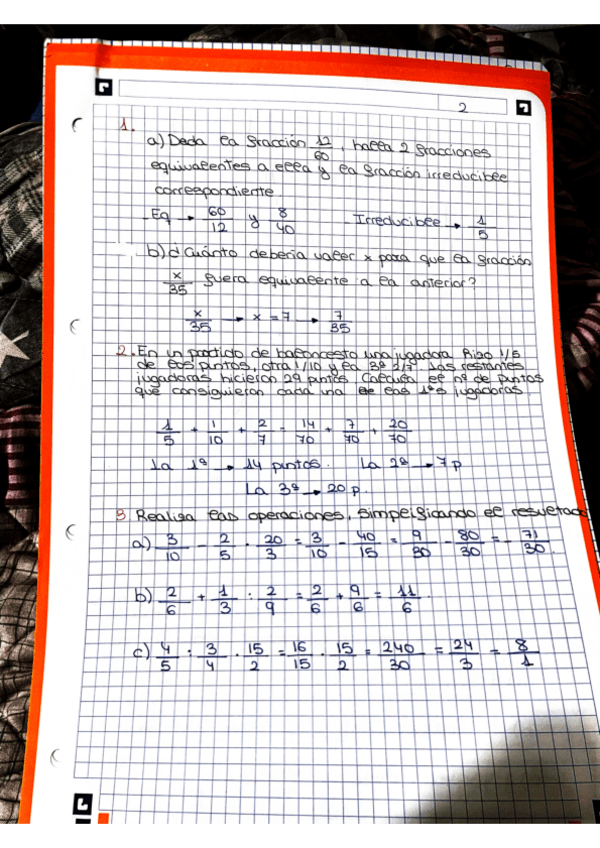 2
1.
a) Dada la fracción 12/60, halla 2 fracciones
equivalentes a ella y la fracción irreducible
correspondiente
- Eq → 60/12 y 8/40 - Irreducible → 1/5
b) ¿Cuánto debería valer x para que la fracción
x/35 fuera equivalente a la anterior?
x/35 → x = 7 → 7/35
2. En un partido de baloncesto una jugadora hizo 1/5
de los puntos, otra 1/10 y la 3ª 2/7. Las restantes
jugadoras hicieron 29 puntos. Calcula el nº de puntos
que consiguieron cada una de las 1ªs jugadoras.
1/5 + 1/10 + 2/7 = 14/70 + 7/70 + 20/70
La 1ª → 14 puntos. La 2ª → 7 p
La 3ª → 20 p.
3 Realiza las operaciones, simplificando el resultado
a) 3/10 - 2/5 · 20/3 = 3/10 - 40/15 = 9/30 - 80/30 = - 71/30.
b) 2/6 + 1/3 : 2/9 = 2/6 + 9/6 = 11/6.
c) 4/5 : 3/4 · 15/2 = 16/15 · 15/2 = 240/30 = 24/3 = 8/1